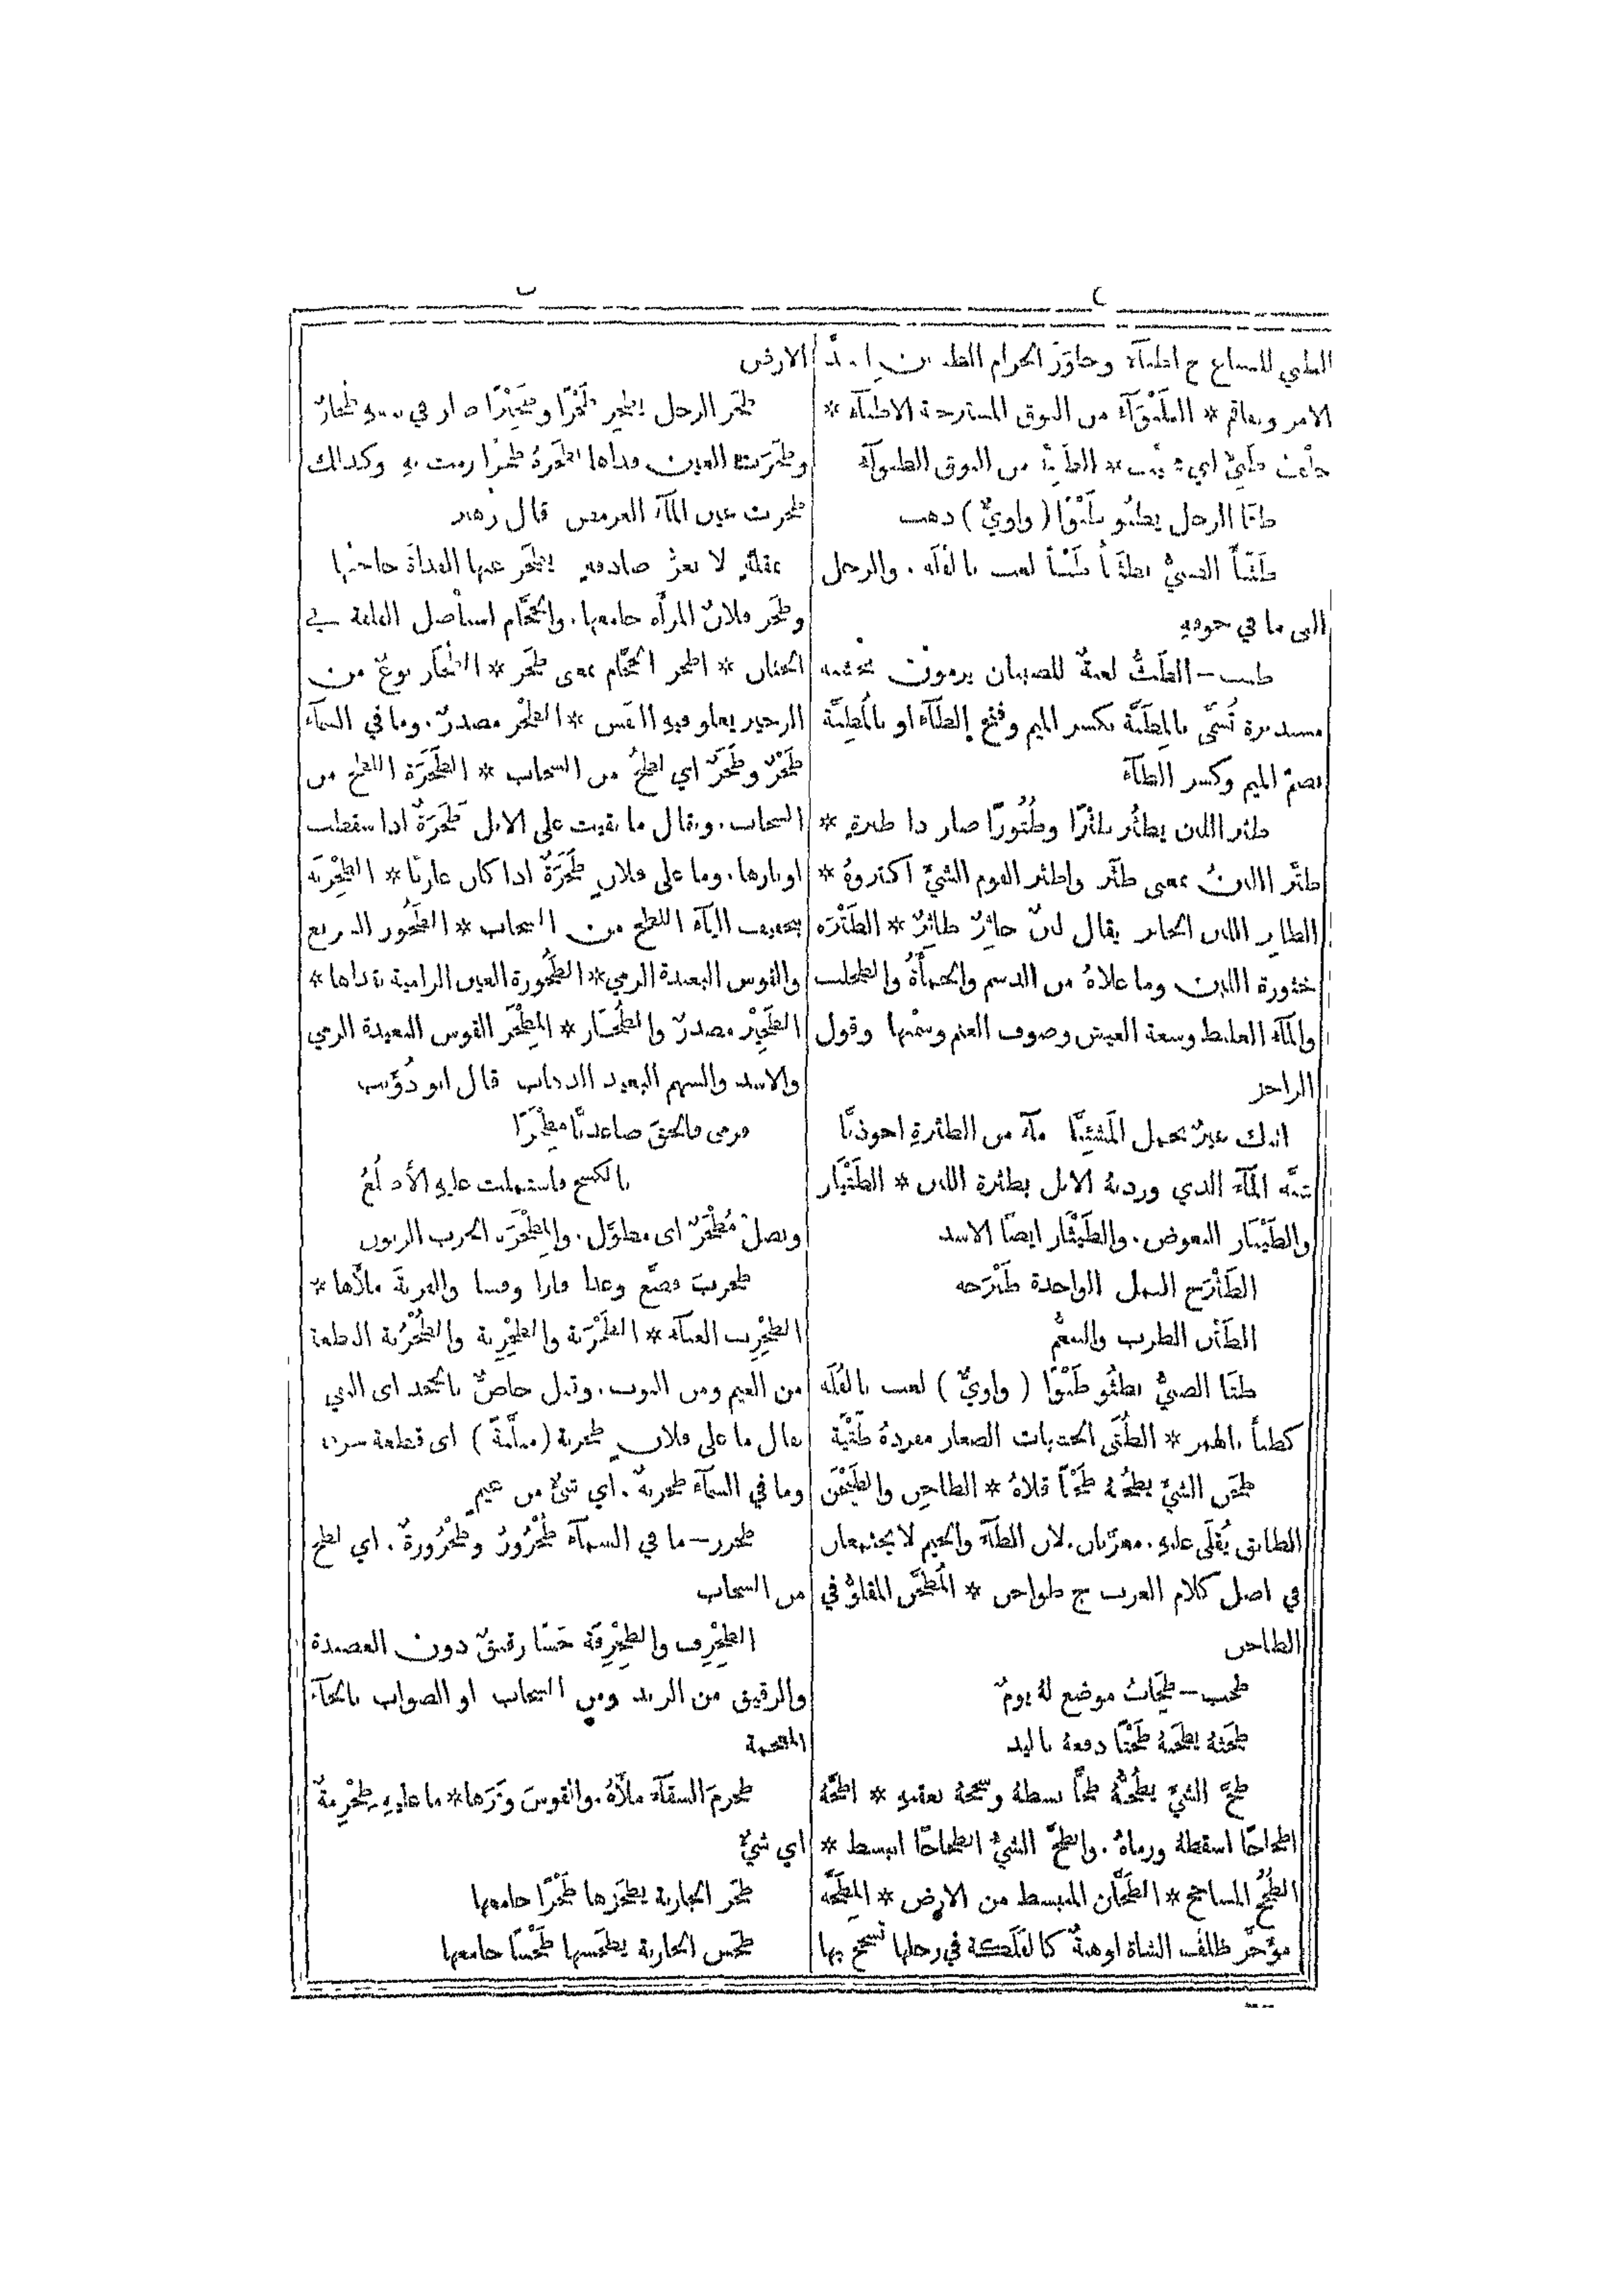 الطبي للسباع ج اطبآء وجاوَزَ الحزام الطبيين اشتدَّ
الامر وتفاقم * الطَبْوَآء من النوق المسترخية الاطبآء *
خِلْفٌ طَبِيٌّ اي مُجيب * الطَبِيَّة من النوق الطبوآء
طتا الرجل يطتُو طَتْوًا (واويٌّ) ذهب
طَثَأَ الصبيُّ يطثَأُ طَثْأً لعب بالقُلَة. والرجل
القى ما في جوفهِ
طثث – الطَثُّ لعبةٌ للصبيان يرمون بخشبة
مستديرة تُسَمَّى بالمِطَثَّة بكسر الميم وفتح الطآء او بالمُطِثَّة
بضمّ الميم وكسر الطآء
طثر اللبن يطثُر طثْرًا وطُثُورًا صار ذا طثرةٍ *
طثَّر اللبنُ بمعنى طثَر. واطثر القوم الشيءَ اكثروهُ *
الطاثر اللبن الخاثر يقال لبنٌ خاثِرٌ طاثِرٌ * الطَثْرَة
خثورة اللبن وما علاهُ من الدسم والحمأَةُ والطحلب
والمآء الغليظ وسعة العيش وصوف الغنم وسمنها وقول
الراجز
اتتك عيرٌ تحمل المَشِيَّا مآء من الطثرةِ احوذيَّا
شبَّه المآء الذي وردتهُ الابل بطثرة اللبن * الطَثْيَار
والطَيْثَار البعوض. والطَيْثَار ايضًا الاسد
الطَثْرَج النمل الواحدة طَثْرَجة
الطَثْن الطرب والتنعُّم
طثا الصبيُّ يطثُو طَثْوًا (واويٌّ) لعب بالقُلَة
كطثأ بالهمز * الطُثَى الخشبات الصغار مفردهُ طَثْيَة
طجَن الشيءَ يطجُنهُ طَجْنًا قلاهُ * الطاجِن والطَيْجَن
الطابق يُقلَى عليهِ. معرّبان. لان الطآء والجيم لا يجتمعان
في اصل كلام العرب ج طواجن * المُطَجَّن المقلوّ في
الطاجن
طحب – طِحَابٌ موضع لهُ يومٌ
طحَثهُ يطحَثهُ طَحْثًا دفعهُ باليد
طحَّ الشيءَ يطُحُّهُ طحًّا بسطهُ وسحجهُ بعقبهِ * اطحَّهُ
اطحاحًا اسقطهُ ورماهُ. وانطحَّ الشيءُ انطحاحًا انبسط *
الطُحُح المساحج * الطَحَّان المنبسط من الارض * المِطَحَّة
مؤَخَّر ظِلف الشاة او هنةٌ كالفَلَكة في رجلها تسحج بها
الارض
طحَر الرجل يطحِر طَحْرًا وطَحِيرًا صار في نفسهِ طُحَارٌ
وطحَرَتِ العين قذاها تطحَرهُ طحرًا رمت بهِ وكذلك
طحرت عين المآء العرمض قال زهير
بمقلةٍ لا تغرُّ صادقةٍ يطحَر عنها القذاةَ حاجبُها
وطحَر فلانٌ المرأَة جامعها. والحجَّام استأصل القلفة في
الختان * اطحر الحجَّام بمعنى طحَر * الطُحَار نوعٌ من
الزحير يعلو فيهِ النفَس * الطَحْر مصدرٌ. وما في السمآء
طَحْرٌ وطَحَرٌ اي لطخٌ من السحاب * الطَحْرَة اللطخ من
السحاب. ويقال ما بقيت على الابل طَحْرَةٌ اذا سقطت
اوبارها. وما على فلانٍ طَحَرَةٌ اذا كان عاريًا * الطِحْرِيَة
بتخفيف اليآء اللطخ من السحاب * الطَحُور السريع
والقوس البعيدة الرمي * الطَحُورة العين الرامية بقذاها *
الطَحِيْر مصدرٌ والطُحَار * المِطْحَر القوس البعيدة الرمي
والاسد والسهم البعيد الذهاب قال ابو ذُؤَيب
فرمى فالحقَ صاعديًّا مِطْحَرًا
بالكشح فاشتملت عليهِ الأَضلُعُ
ونصلٌ مُطْحَرٌ اي مطوَّل. والمِطْحَرَة الحرب الزبون
طحربَ قصَّع وعدا فارًّا وفسا والقربةَ ملأَها *
الطِحْرِب الغثآء * الطَحْرَبَة والطِحْرِبة والطُحْرُبة القطعة
من الغيم ومن الثوب. وقيل خاصٌّ بالجحد اي النفي
يقال ما على فلانٍ طحربة (مثلَّثةً) اي قطعة خرقة
وما في السمآء طحربةٌ. اي شيءٌ من غيمٍ
طحرر – ما في السمآء طُحْرُورٌ وطُحْرُورةٌ. اي لطخ
من السحاب
الطِحْرِف والطِحْرِفَة حَسًا رقيقٌ دون العصيدة
والرقيق من الزبد ومن السحاب او الصواب بالخآء
المعجمة
طحرمَ السقآءَ ملأَهُ. والقوسَ وَتَرَها * ما عليهِ طِحْرِمةٌ
اي شيءٌ
طحَز الجارية يطحَزها طَحْزًا جامعها
طحَس الجارية يطحَسها طَحْسًا جامعها